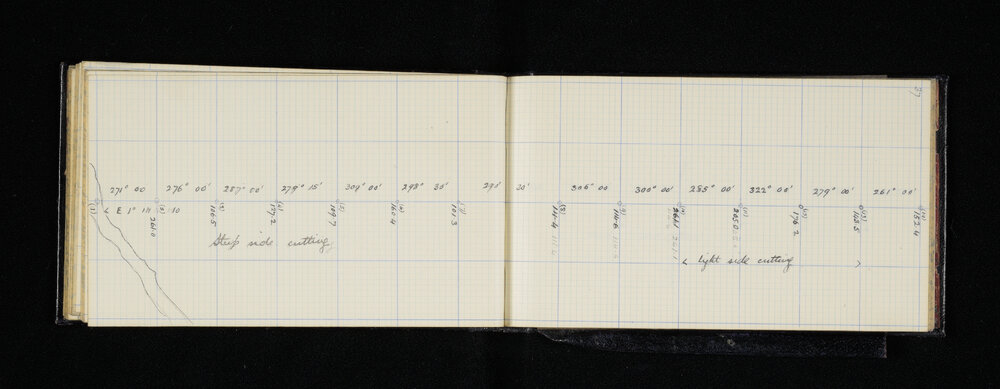 37
271° 00 276° 00' 287° 50' 279° 15' 309° 00' 298° 30' 291° 30' 306° 00 300° 00' 285° 00' 322° 00' 279° 00' 261° 00'
(1) < E 1° 10
261.0
116.5
197.2
119.7
160.4
101.3
141.4
264.1
205.0
176.2
145.5
152.4
Steep side cutting
< light side cutting >